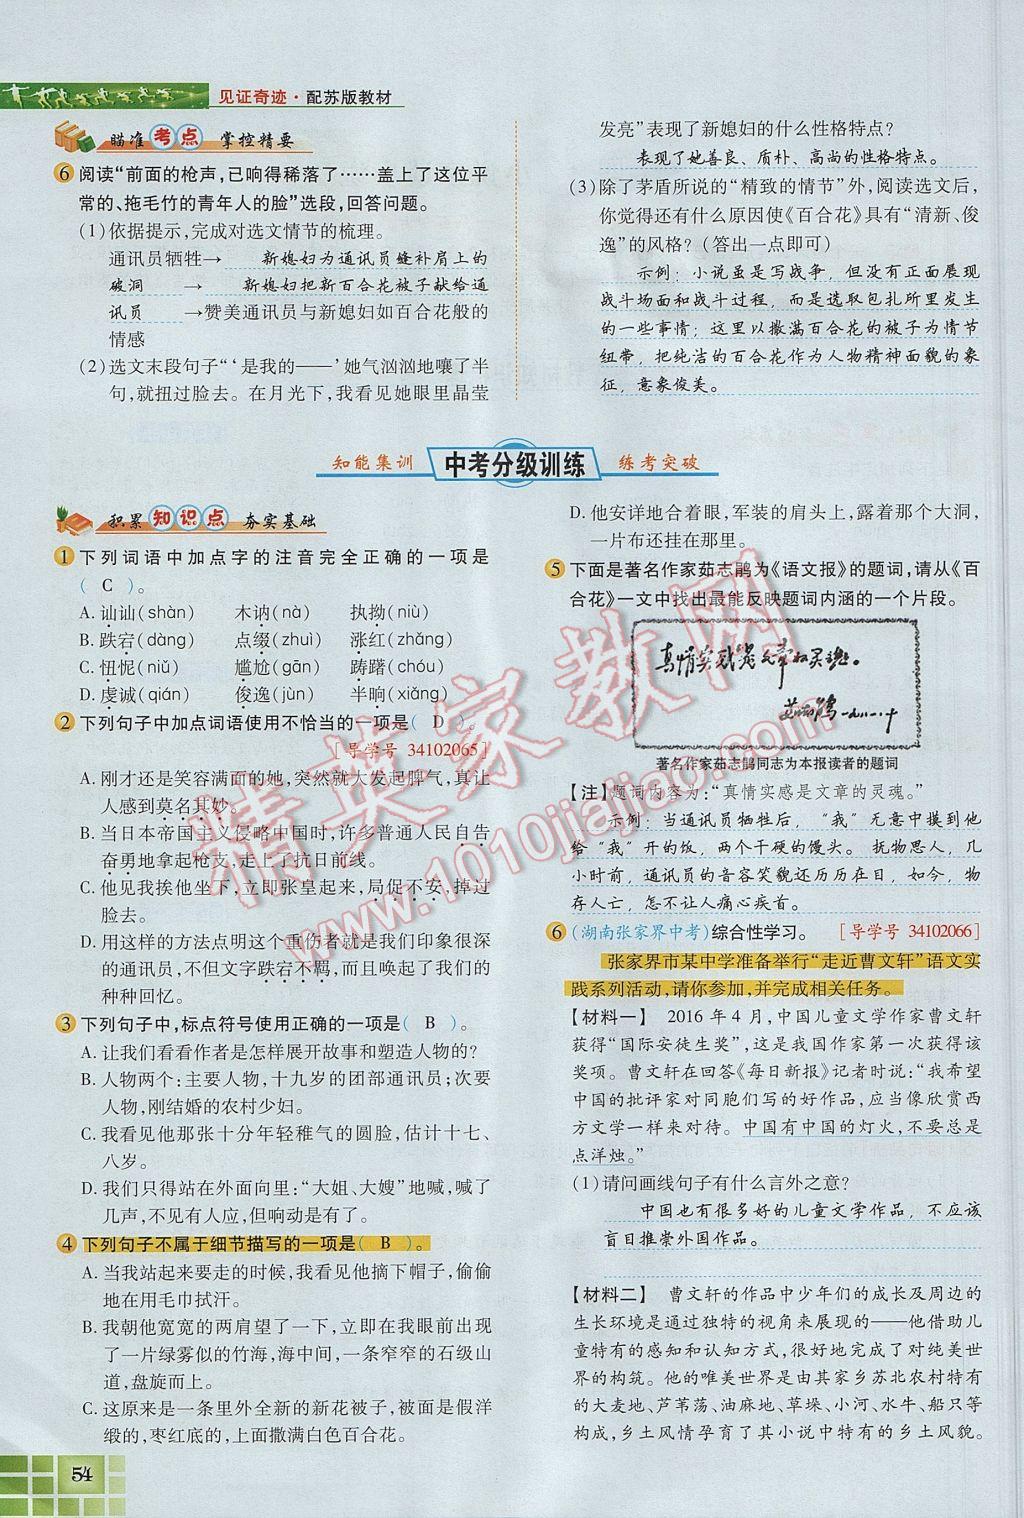 见证奇迹·配苏版教材
瞄准考点 掌控精要
6 阅读“前面的枪声，已响得稀落了……盖上了这位平
常的、拖毛竹的青年人的脸”选段，回答问题。
(1)依据提示，完成对选文情节的梳理。
通讯员牺牲→ 新媳妇为通讯员缝补肩上的
破洞 → 新媳妇把新百合花被子献给通
讯员 →赞美通讯员与新媳妇如百合花般的
情感
(2)选文末段句子“‘是我的——’她气汹汹地嚷了半
句，就扭过脸去。在月光下，我看见她眼里晶莹
发亮”表现了新媳妇的什么性格特点？
表现了她善良、质朴、高尚的性格特点。
(3)除了茅盾所说的“精致的情节”外，阅读选文后，
你觉得还有什么原因使《百合花》具有“清新、俊
逸”的风格？(答出一点即可)
示例：小说虽是写战争，但没有正面展现
战斗场面和战斗过程，而是选取包扎所里发生
的一些事情；这里以撒满百合花的被子为情节
纽带，把纯洁的百合花作为人物精神面貌的象
征，意象俊美。
知能集训 中考分级训练 练考突破
积累知识点 夯实基础
1 下列词语中加点字的注音完全正确的一项是
( C )。
A. 讪讪(shàn) 木讷(nà) 执拗(niù)
B. 跌宕(dàng) 点缀(zhuì) 涨红(zhǎng)
C. 忸怩(niǔ) 尴尬(gān) 踌躇(chóu)
D. 虔诚(qián) 俊逸(jùn) 半晌(xiǎng)
2 下列句子中加点词语使用不恰当的一项是( D )。
[导学号 34102065]
A. 刚才还是笑容满面的她，突然就大发起脾气，真让
人感到莫名其妙。
B. 当日本帝国主义侵略中国时，许多普通人民自告
奋勇地拿起枪支，走上了抗日前线。
C. 他见我挨他坐下，立即张皇起来，局促不安，掉过
脸去。
D. 用这样的方法点明这个重伤者就是我们印象很深
的通讯员，不但文字跌宕不羁，而且唤起了我们的
种种回忆。
3 下列句子中，标点符号使用正确的一项是( B )。
A. 让我们看看作者是怎样展开故事和塑造人物的？
B. 人物两个：主要人物，十九岁的团部通讯员；次要
人物，刚结婚的农村少妇。
C. 我看见他那张十分年轻稚气的圆脸，估计十七、
八岁。
D. 我们只得站在外面向里：“大姐、大嫂”地喊，喊了
几声，不见有人应，但响动是有了。
4 下列句子不属于细节描写的一项是( B )。
A. 当我站起来要走的时候，我看见他摘下帽子，偷偷
地在用毛巾拭汗。
B. 我朝他宽宽的两肩望了一下，立即在我眼前出现
了一片绿雾似的竹海，海中间，一条窄窄的石级山
道，盘旋而上。
C. 这原来是一条里外全新的新花被子，被面是假洋
缎的，枣红底的，上面撒满白色百合花。
D. 他安详地合着眼，军装的肩头上，露着那个大洞，
一片布还挂在那里。
5 下面是著名作家茹志鹃为《语文报》的题词，请从《百
合花》一文中找出最能反映题词内涵的一个片段。
真情实感是文章的灵魂。
茹志鹃
著名作家茹志鹃同志为本报读者的题词
【注】题词内容为：“真情实感是文章的灵魂。”
示例：当通讯员牺牲后，“我”无意中摸到他
给“我”开的饭，两个干硬的馒头。抚物思人，几
小时前，通讯员的音容笑貌还历历在目，如今，物
存人亡，怎不让人痛心疾首。
6 (湖南张家界中考)综合性学习。 [导学号 34102066]
张家界市某中学准备举行“走近曹文轩”语文实
践系列活动，请你参加，并完成相关任务。
【材料一】 2016年4月，中国儿童文学作家曹文轩
获得“国际安徒生奖”，这是我国作家第一次获得该
奖项。曹文轩在回答《每日新报》记者时说：“我希望
中国的批评家对同胞们写的好作品，应当像欣赏西
方文学一样来对待。中国有中国的灯火，不要总是
点洋烛。”
(1)请问画线句子有什么言外之意？
中国也有很多好的儿童文学作品，不应该
盲目推崇外国作品。
【材料二】 曹文轩的作品中少年们的成长及周边的
生长环境是通过独特的视角来展现的——他借助儿
童特有的感知和认知方式，很好地完成了对纯美世
界的构筑。他的唯美世界是由其家乡苏北农村特有
的大麦地、芦苇荡、油麻地、草垛、小河、水牛、船只等
构成，乡土风情孕育了其小说中特有的乡土风貌。
54
精英家教网
www.1010jiajiao.com